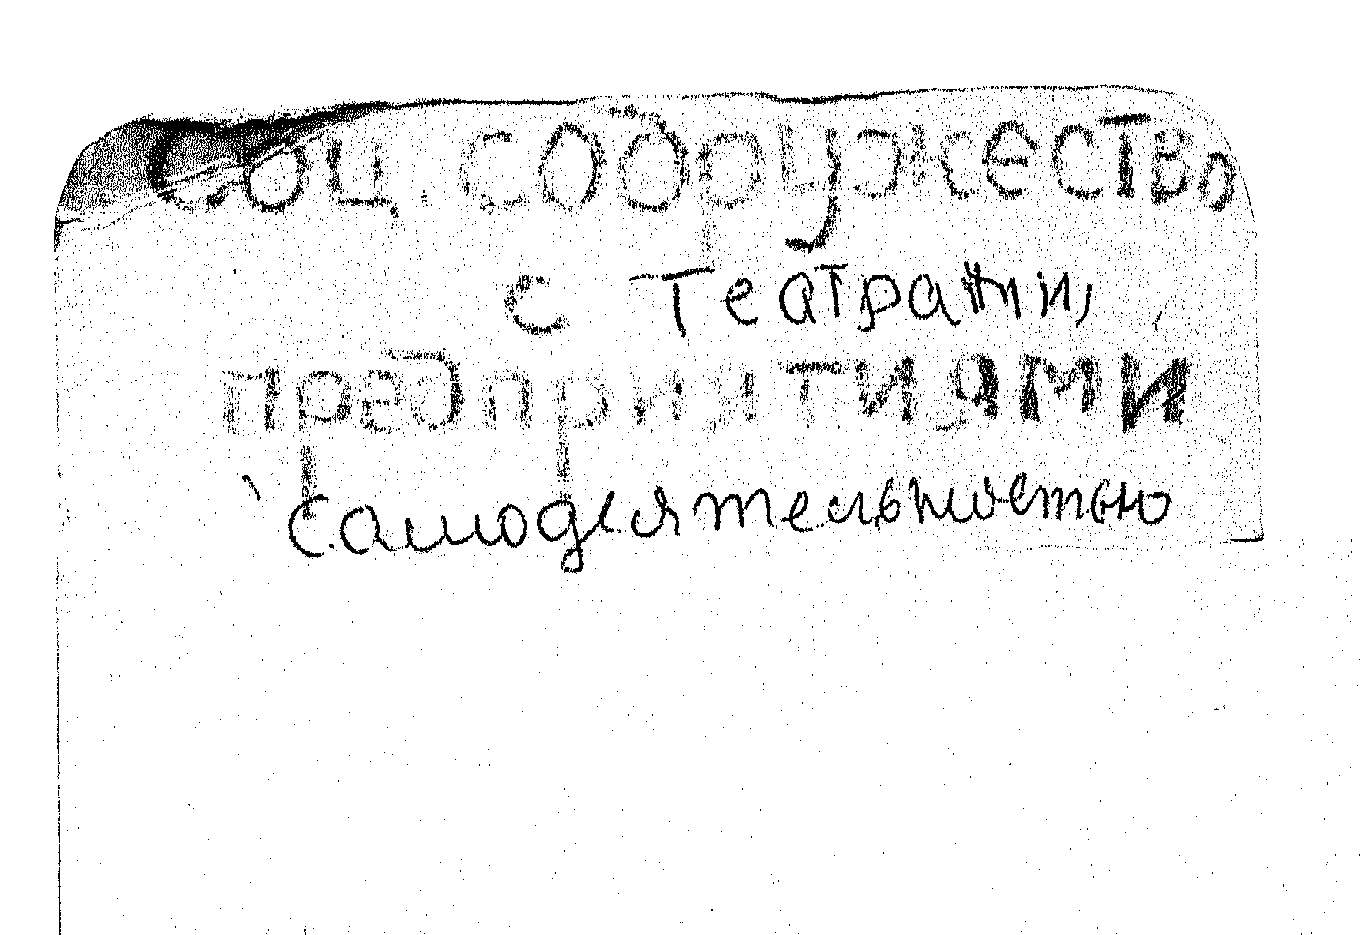 Соц. содружество
с театрами,
предприятиями
самодеятельностью